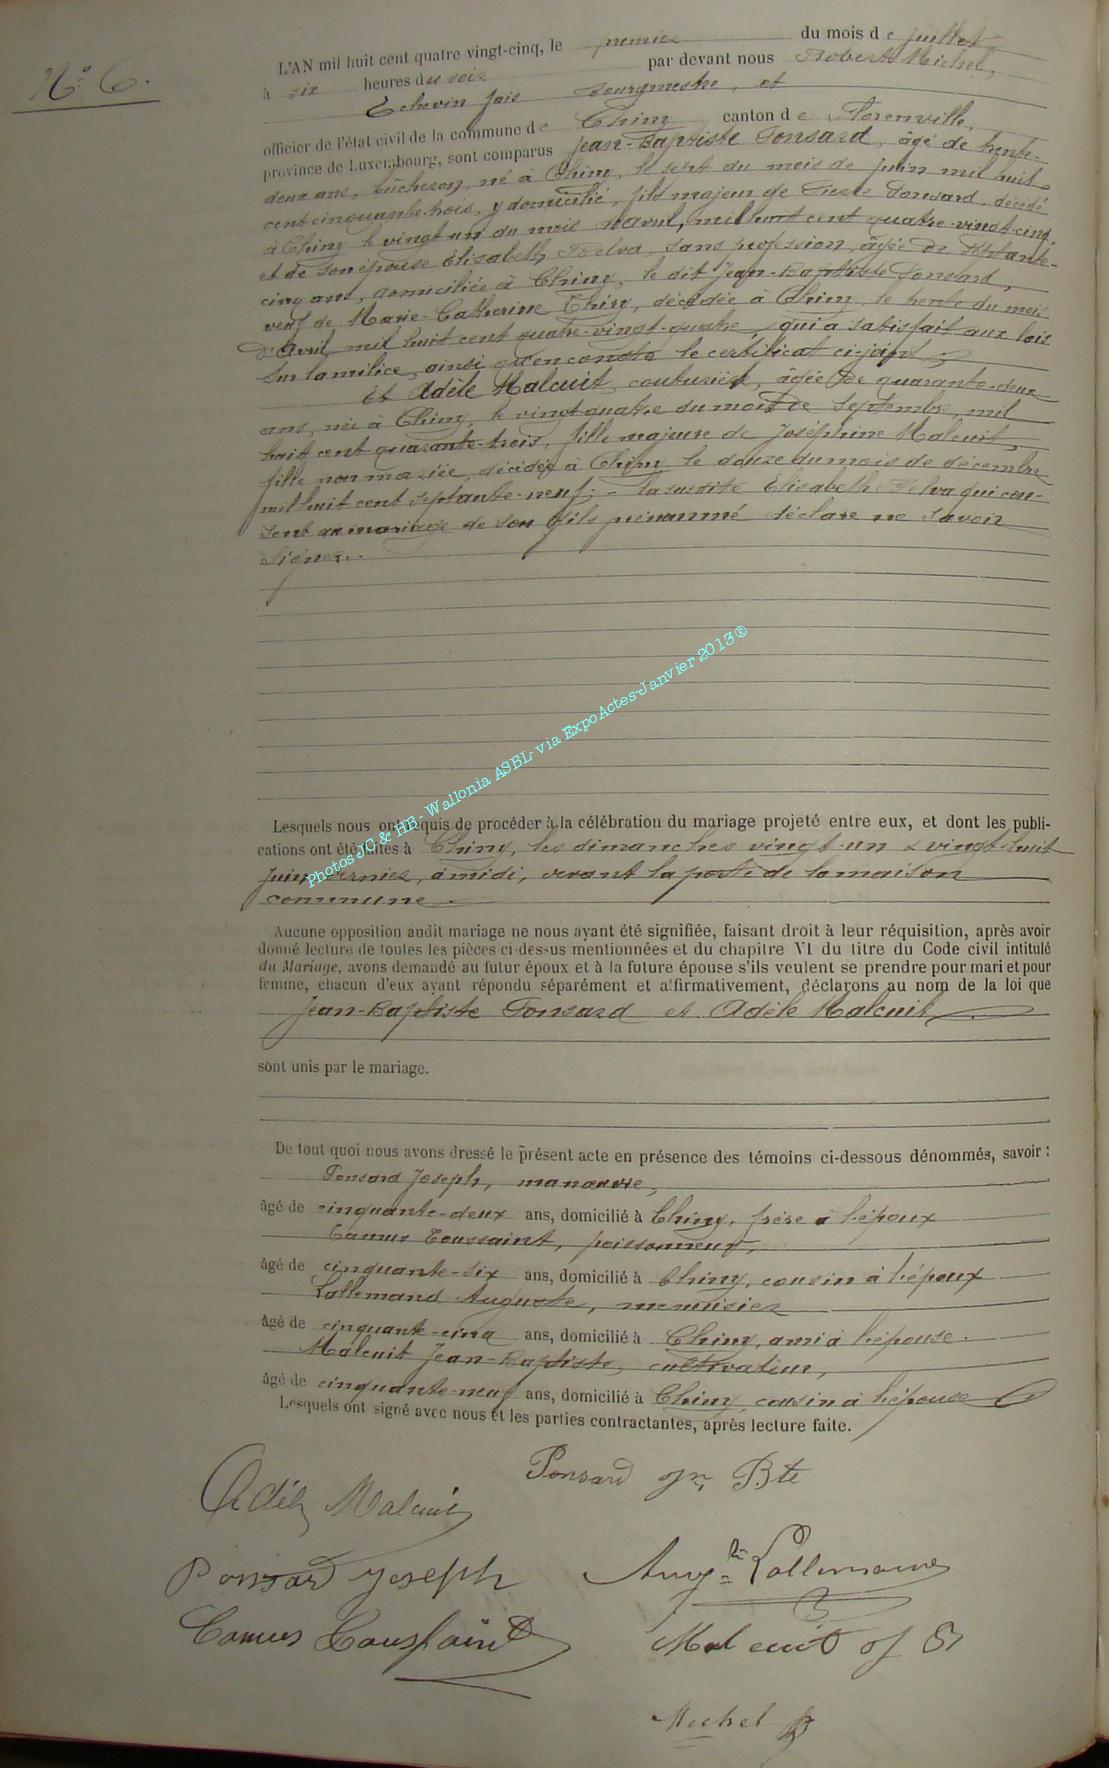 N° 6.
L'AN mil huit cent quatre vingt-cinq, le premier du mois de juillet
à six heures du soir par devant nous Robert Michel,
Echevin fais Bourgmestre, et
officier de l'état civil de la commune de Chiny canton de Florenville,
province de Luxembourg, sont comparus Jean-Baptiste Ponsard, âgé de trente-
deux ans, bûcheron, né à Chiny, le sept du mois de Juin mil huit
cent cinquante-trois, y domicilié, fils majeur de Pierre Ponsard, décédé
à Chiny le vingt-un du mois d'avril, mil huit cent quatre-vingt-cinq,
et de son épouse Elisabeth Pelva, sans profession, âgée de septante-
cinq ans, domiciliée à Chiny, le dit Jean-Baptiste Ponsard,
veuf de Marie-Catherine Thiry, décédée à Chiny, le trente du mois
d'Avril mil huit cent quatre-vingt-quatre, qui a satisfait aux lois
sur la milice, ainsi qu'en conste le certificat ci-joint ;
Et Adèle Malcuit, couturière, âgée de quarante-deux
ans, née à Chiny, le vingt-quatre du mois de Septembre, mil
huit cent quarante-trois, fille majeure de Joséphine Malcuit,
fille non mariée, décédée à Chiny le douze du mois de décembre
mil huit cent septante-neuf ; - la susdite Elisabeth Pelva qui con-
sent au mariage de son fils prénommé déclare ne savoir
signer.
Lesquels nous ont requis de procéder à la célébration du mariage projeté entre eux, et dont les publi-
cations ont été faites à Chiny, les dimanches vingt-un & vingt-huit
Juin dernier, à midi, devant la porte de la maison
commune.
Aucune opposition audit mariage ne nous ayant été signifiée, faisant droit à leur réquisition, après avoir
donné lecture de toutes les pièces ci-dessus mentionnées et du chapitre VI du titre du Code civil intitulé
du Mariage, avons demandé au futur époux et à la future épouse s'ils veulent se prendre pour mari et pour
femme, chacun d'eux ayant répondu séparément et affirmativement, déclarons au nom de la loi que
Jean-Baptiste Ponsard et Adèle Malcuit
sont unis par le mariage.
De tout quoi nous avons dressé le présent acte en présence des témoins ci-dessous dénommés, savoir :
Ponsard Joseph, manœuvre,
âgé de cinquante-deux ans, domicilié à Chiny, frère à l'époux
Camus Toussaint, poissonneur,
âgé de cinquante-six ans, domicilié à Chiny, cousin à l'époux
Lallemand Auguste, menuisier
âgé de cinquante-cinq ans, domicilié à Chiny, ami à l'épouse.
Malcuit Jean-Baptiste, cultivateur,
âgé de cinquante-neuf ans, domicilié à Chiny, cousin à l'épouse
Lesquels ont signé avec nous et les parties contractantes, après lecture faite.
Ponsard Jn Bte
Adèle Malcuit
Ponsard Joseph
Augte Lallemand
Camus Toussaint
Malcuit J Bt
Michel
Photos JC & HB - Wallonia ASBL via ExpoActes-Janvier 2013®